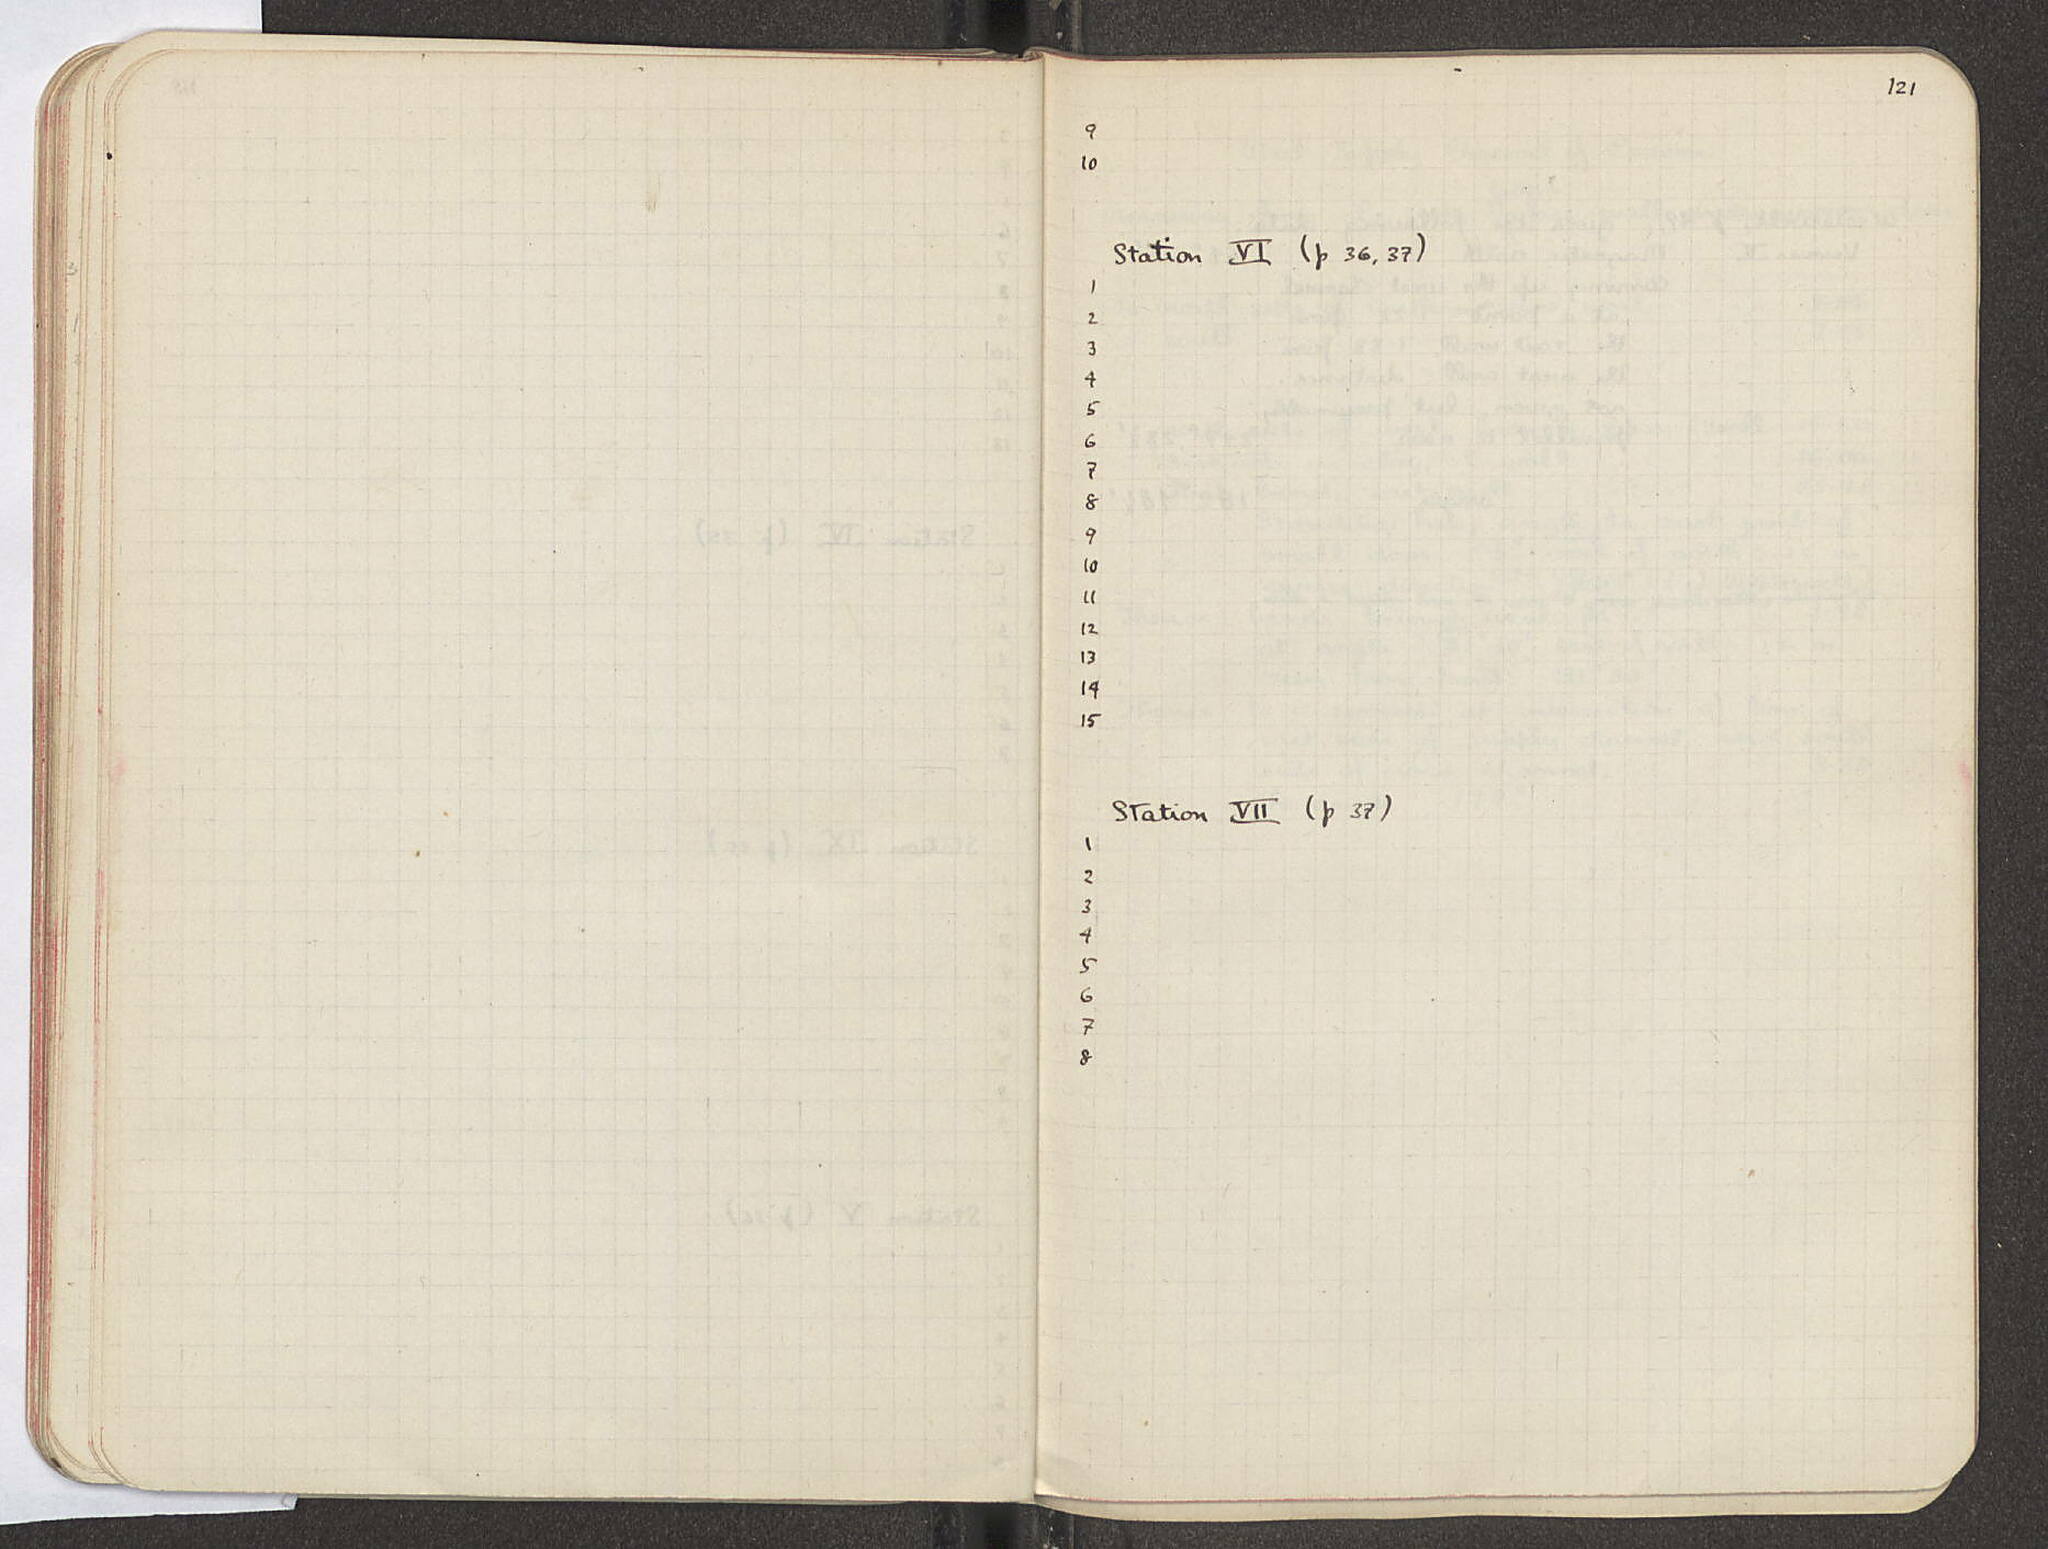 121
9
10
Station VI (p 36, 37)
1
2
3
4
5
6
7
8
9
10
11
12
13
14
15
Station VII (p 37)
1
2
3
4
5
6
7
8